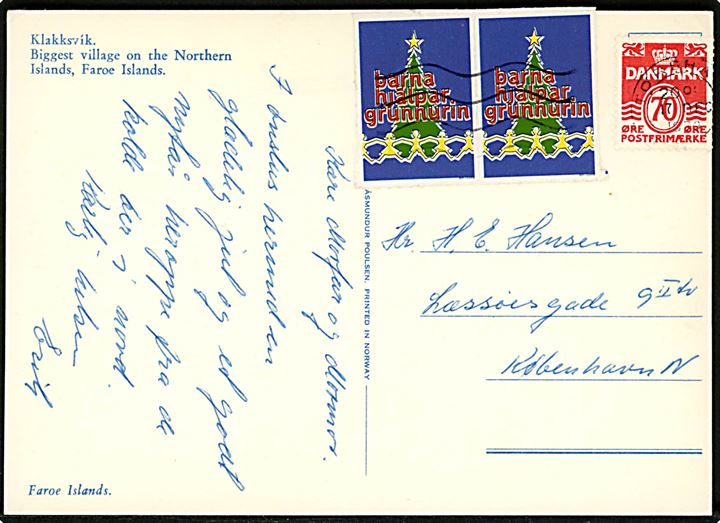 Klakksvík.
Biggest village on the Northern
Islands, Faroe Islands.
barna
hjálpar.
grunnurin
barna
hjálpar.
grunnurin
DANMARK
70
ØRE ØRE
POSTFRIMÆRKE
Kære Morfar og Mormor.
I ønskes hermed en
glædelig jul og et godt
nytår heroppe fra de
kolde øer i nord.
Kærlig hilsen
Erik
ÁSMUNDUR POULSEN. PRINTED IN NORWAY
Hr. H. E. Hansen
Læssøesgade 9 II tv
København N
Faroe Islands.